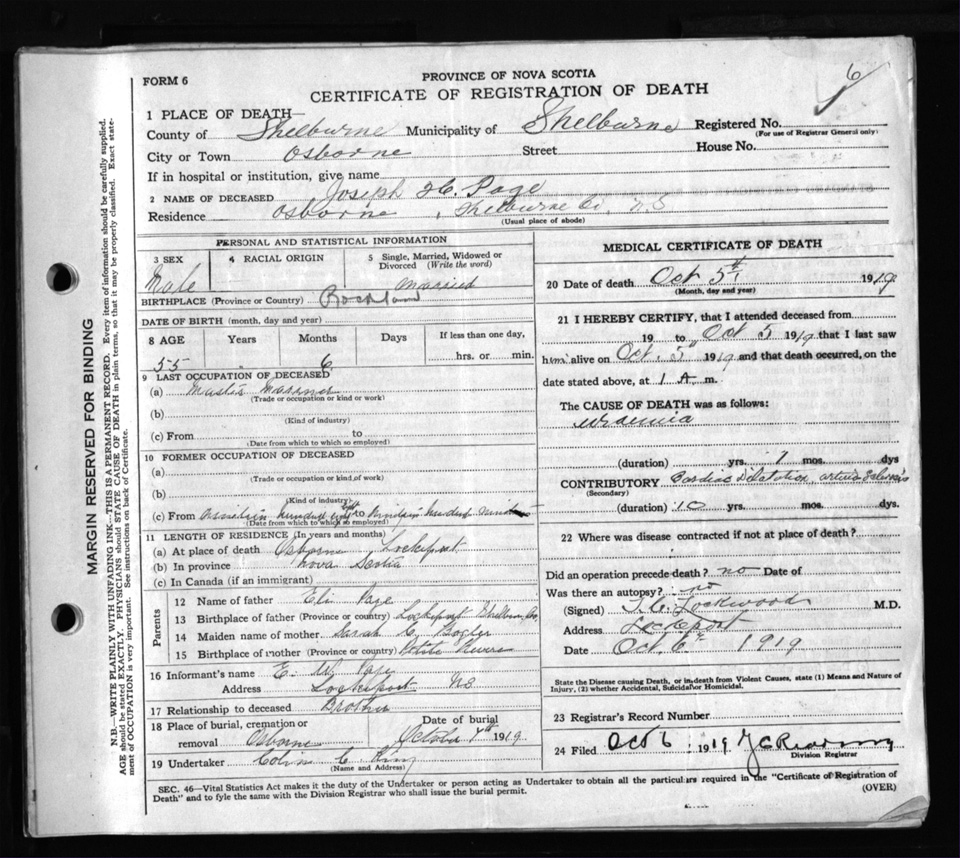 6
FORM 6
PROVINCE OF NOVA SCOTIA
CERTIFICATE OF REGISTRATION OF DEATH
1 PLACE OF DEATH—
County of Shelburne Municipality of Shelburne Registered No.
(For use of Registrar General only)
City or Town Osborne Street House No.
If in hospital or institution, give name
2 NAME OF DECEASED Joseph H. Page
Residence Osborne, Shelburne Co. N.S
(Usual place of abode)
PERSONAL AND STATISTICAL INFORMATION
3 SEX 4 RACIAL ORIGIN 5 Single, Married, Widowed or Divorced (Write the word)
Male Married
BIRTHPLACE (Province or Country) Rockland
DATE OF BIRTH (month, day and year)
8 AGE Years Months Days If less than one day,
55 6 hrs. or min.
9 LAST OCCUPATION OF DECEASED
(a) Master Mariner
(Trade or occupation or kind or work)
(b)
(Kind of industry)
(c) From to
(Date from which to which so employed)
10 FORMER OCCUPATION OF DECEASED
(a)
(Trade or occupation or kind of work)
(b)
(Kind of industry)
(c) From hundred to hundred
(Date from which to which so employed)
11 LENGTH OF RESIDENCE (In years and months)
(a) At place of death Osborne Lockeport
(b) In province Nova Scotia
(c) In Canada (if an immigrant)
Parents
12 Name of father Eli Page
13 Birthplace of father (Province or country) Lockeport Shelburne Co,
14 Maiden name of mother Sarah C.
15 Birthplace of mother (Province or country) Rivers
16 Informant's name E. W. Page
Address Lockeport NS
17 Relationship to deceased Brother
18 Place of burial, cremation or removal Osborne Date of burial October 7th 1919
19 Undertaker Colin C.
(Name and Address)
MEDICAL CERTIFICATE OF DEATH
20 Date of death Oct 5th 1919
(Month, day and year)
21 I HEREBY CERTIFY, that I attended deceased from
19 to Oct 5 1919 that I last saw
him alive on Oct. 5 1919 and that death occurred, on the
date stated above, at 1 A m.
The CAUSE OF DEATH was as follows:
Uraemia
(duration) yrs. 1 mos. dys
CONTRIBUTORY Cardiac Dilatation,
(Secondary)
(duration) 10 yrs. mos. dys
22 Where was disease contracted if not at place of death?
Did an operation precede death? no Date of
Was there an autopsy? no
(Signed) Lockwood M.D.
Address Lockeport
Date Oct. 6th 1919
State the Disease causing Death, or in death from Violent Causes, state (1) Means and Nature of Injury, (2) whether Accidental, Suicidal or Homicidal.
23 Registrar's Record Number
24 Filed Oct 6 1919
Division Registrar
SEC. 46—Vital Statistics Act makes it the duty of the Undertaker or person acting as Undertaker to obtain all the particulars required in the "Certificate of Registration of Death" and to fyle the same with the Division Registrar who shall issue the burial permit.
(OVER)
MARGIN RESERVED FOR BINDING
N.B.—WRITE PLAINLY WITH UNFADING INK—THIS IS A PERMANENT RECORD. Every item of information should be carefully supplied.
AGE should be stated EXACTLY. PHYSICIANS should STATE CAUSE OF DEATH in plain terms, so that it may be properly classified. Exact statement of OCCUPATION is very important. See instructions on back of Certificate.